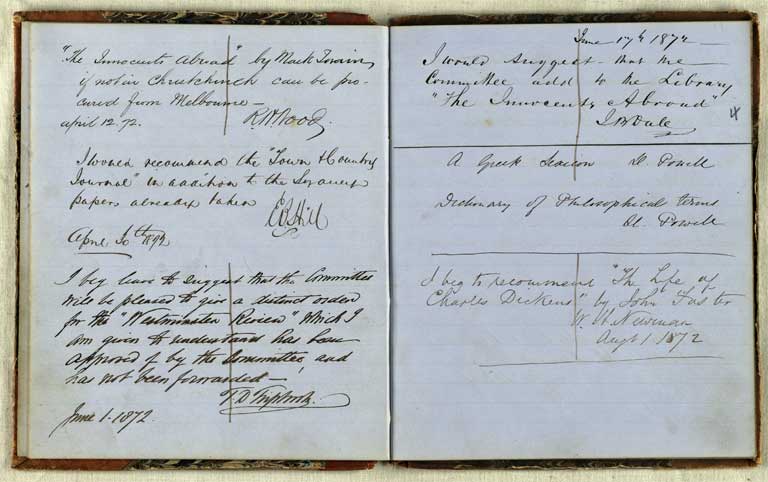 "The Innocents Abroad" by Mark Twain,
if not in Christchurch can be pro-
cured from Melbourne -
april 12. 72. R H Wood
I would recommend the "Town & Country
Journal" in addition to the
papers already taken
E B Hill
April 30th 1872
I beg leave to suggest that the Committee
will be pleased to give a distinct order
for the "Westminster Review" which I
am given to understand has been
approved of by the Committee, and
has not been forwarded -
June 1 - 1872.
June 17th 1872
I would suggest that the
Committee add to the Library
"The Innocents Abroad"
J B Dale
A Greek Lexicon Ll. Powell
Dictionary of Philosophical terms
Ll. Powell
I beg to recommend "The Life of
Charles Dickens" by John Foster
W. W. Newman
Augt 1 1872